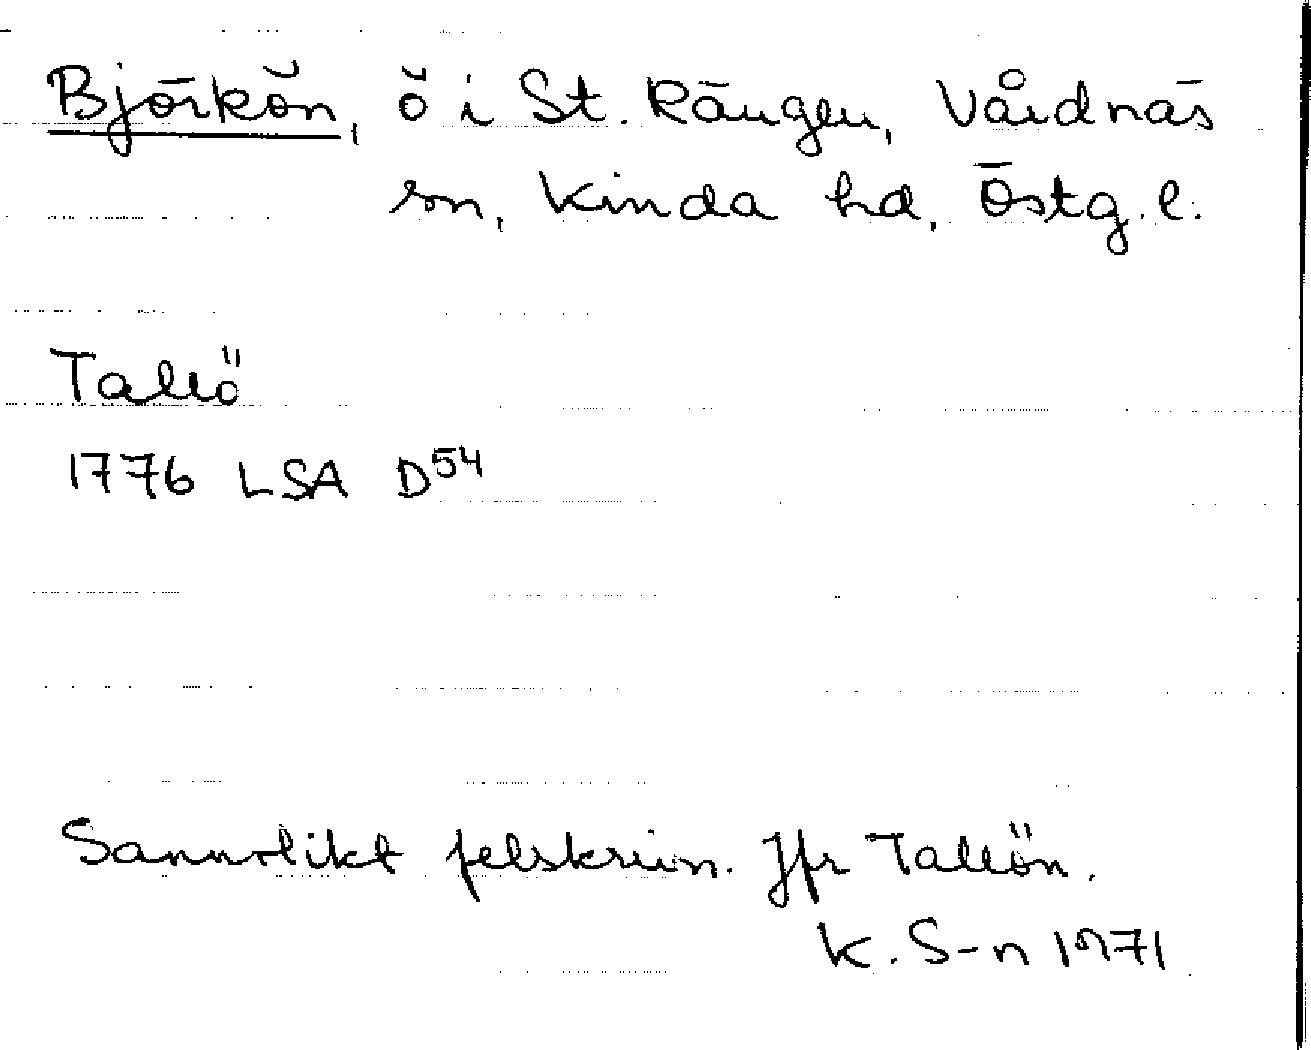 Björkön, ö i St. Rängen, Vårdnäs
sn, Kinda hd, Östg. l.
Tallö
1776 LSA D54
Sannolikt felskrivn. Jfr Tallön.
K. S-n 1971